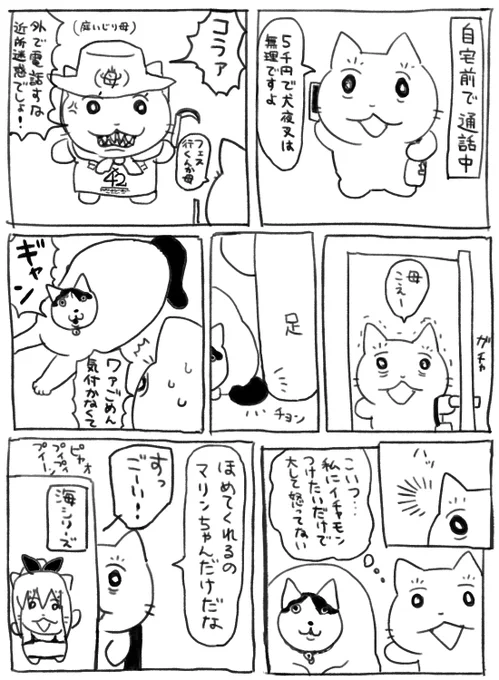 自宅前で通話中
5千円で犬夜叉は
無理ですよ
コラァ
(庭いじり母)
母
外で電話すな
近所迷惑でしょ！
フェス
行くんか母
42
母
こえー
ガチャ
足
チョン
ギャン
ワァごめん
気付かなくて
ハッ
こいつ…
私にイチャモン
つけたいだけで
大して怒ってない
ほめてくれるの
マリンちゃんだけだな
すっ
ごーい！
ピャオ
プィプィ
プイーン
海シリーズ